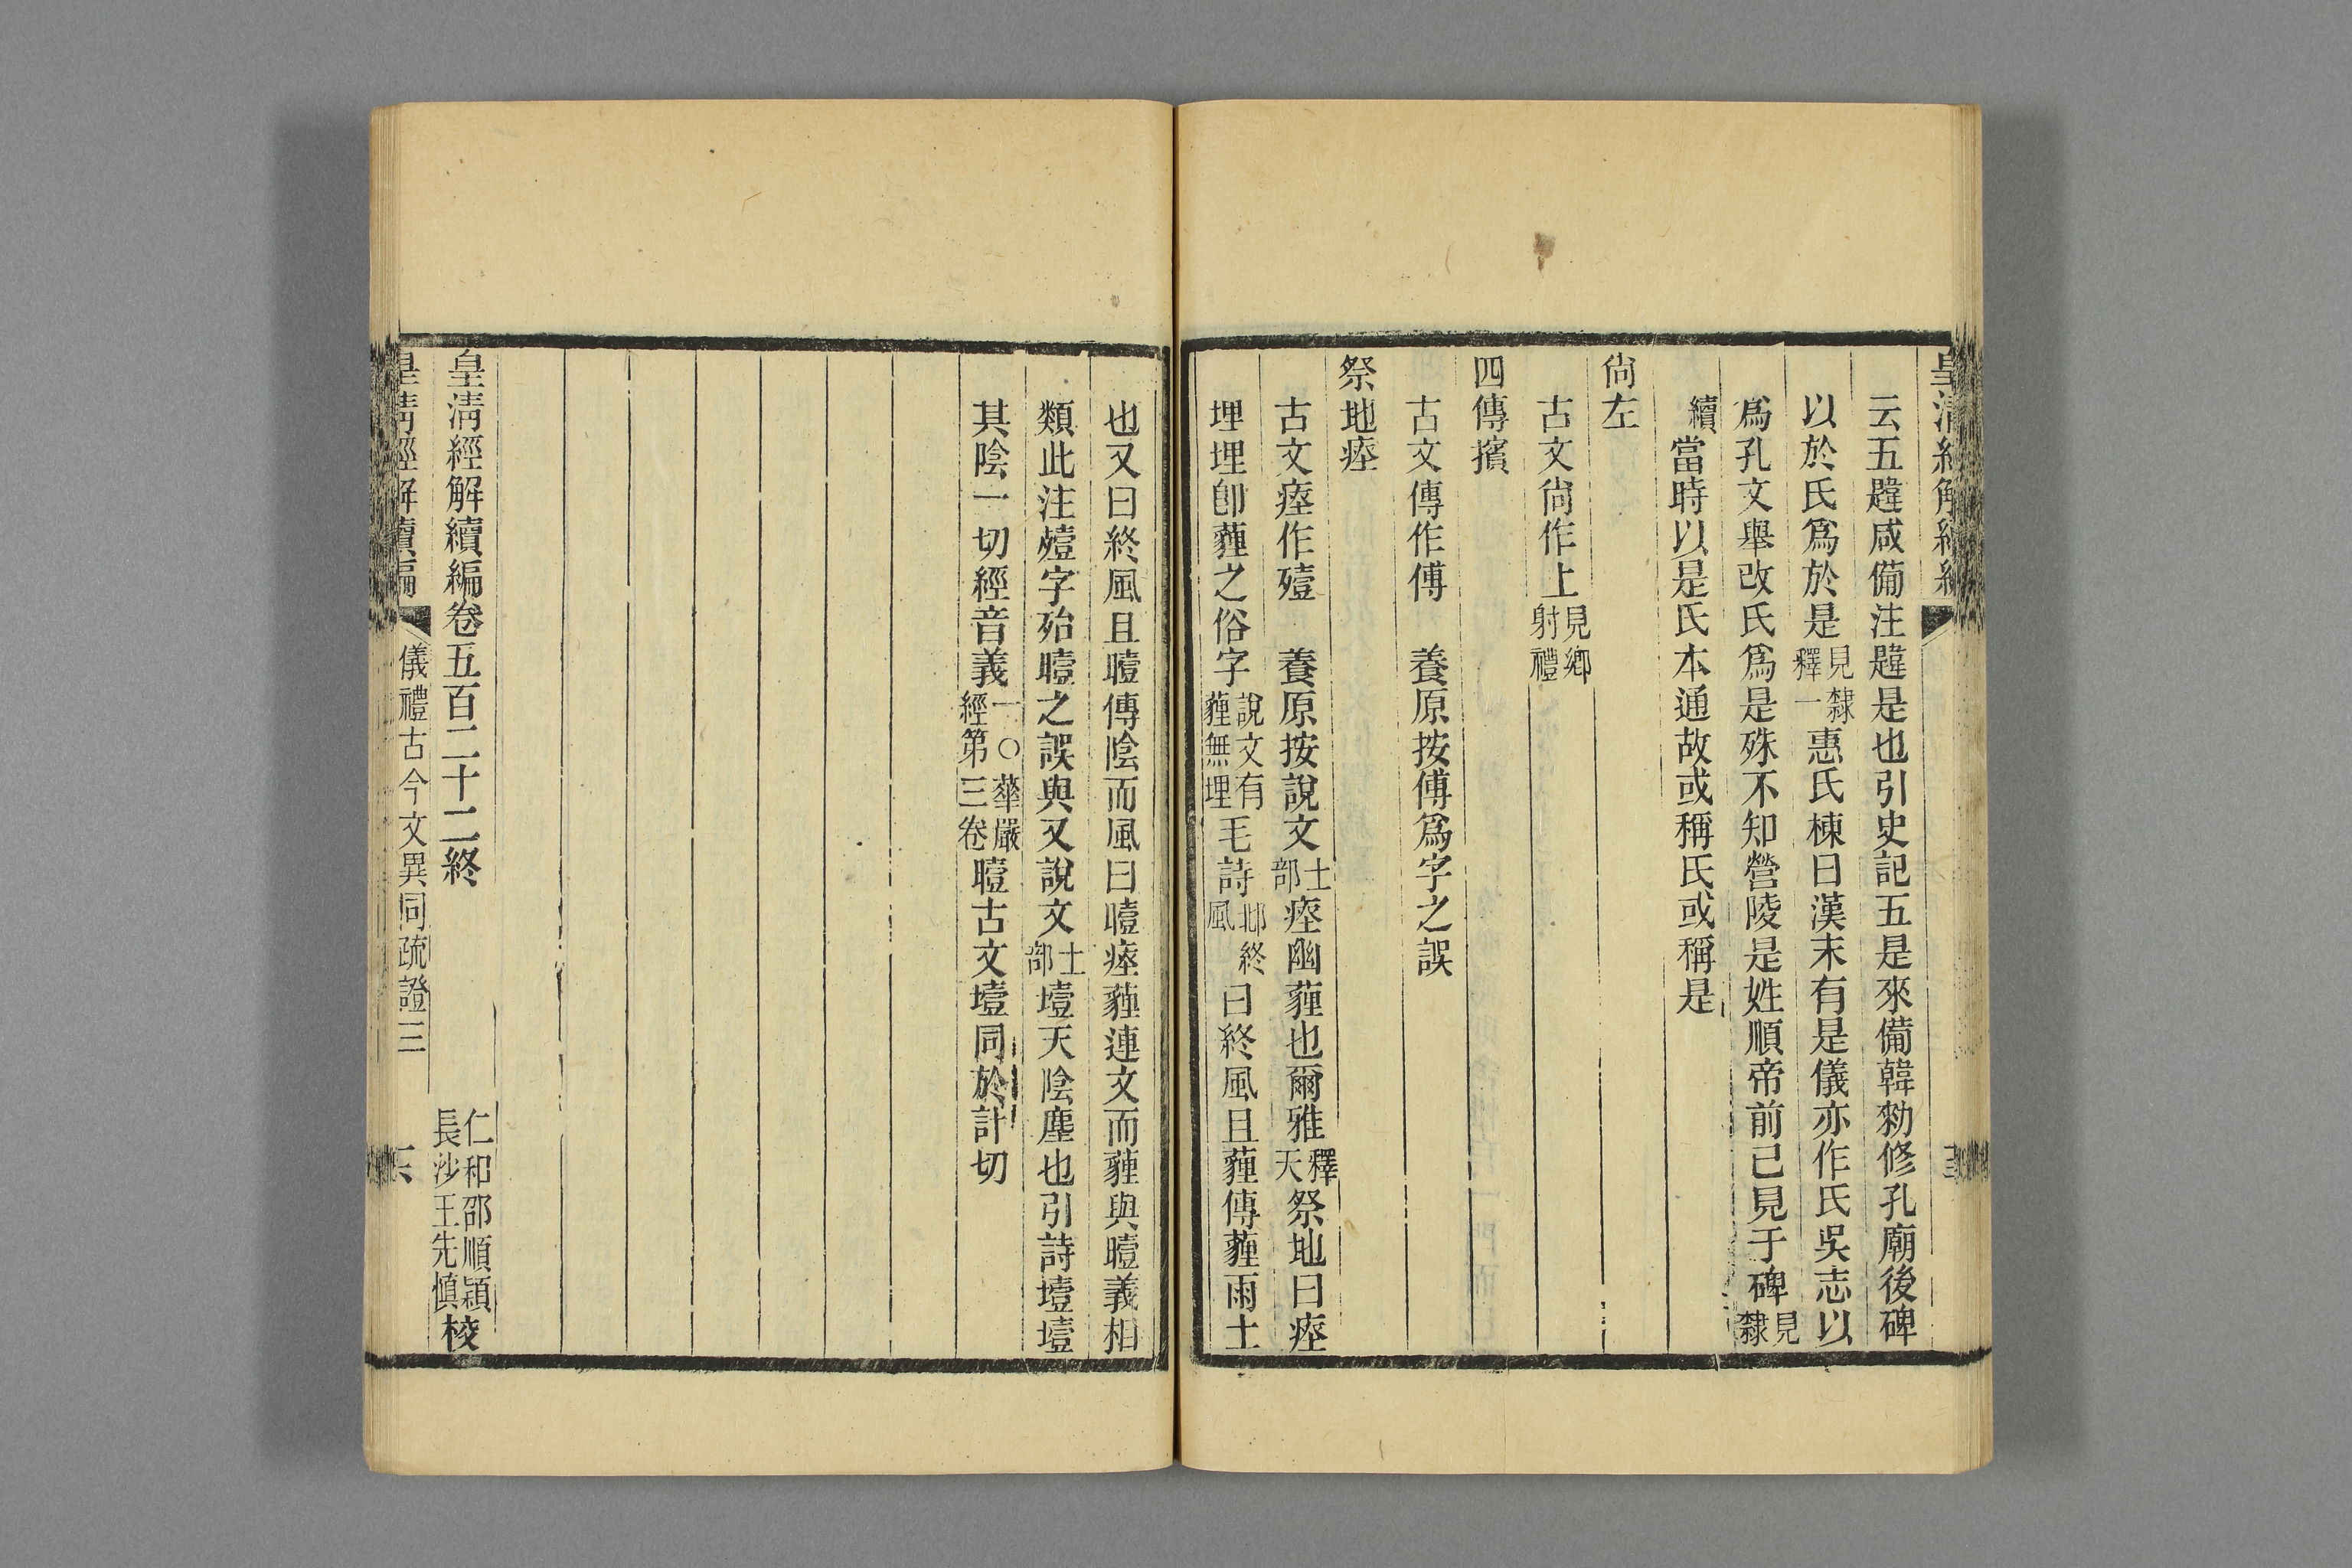 皇清經解續編
云五韙咸備注韙是也引史記五是來備韓勑修孔廟後碑
以於氏爲於是見隸釋一惠氏棟曰漢末有是儀亦作氏吳志以
爲孔文舉改氏爲是殊不知營陵是姓順帝前已見于碑見隸
續當時以是氏本通故或稱氏或稱是
尙左
古文尙作上見鄉射禮
四傳擯
古文傳作傅　養原按傅爲字之誤
祭地瘞
古文瘞作殪　養原按說文土部瘞幽薶也爾雅釋天祭地曰瘞
埋埋卽薶之俗字說文有薶無埋毛詩邶終風曰終風且薶傳薶雨土
也又曰終風且曀傳陰而風曰曀瘞薶連文而薶與曀義相
類此注殪字殆曀之誤與又說文土部壇天陰塵也引詩壇壇
其陰一切經音義一〇華嚴經第三卷曀古文壇同於計切
皇清經解續編卷五百二十二終
仁和邵順頴
長沙王先慎校
皇清經解續編
儀禮古今文異同疏證三